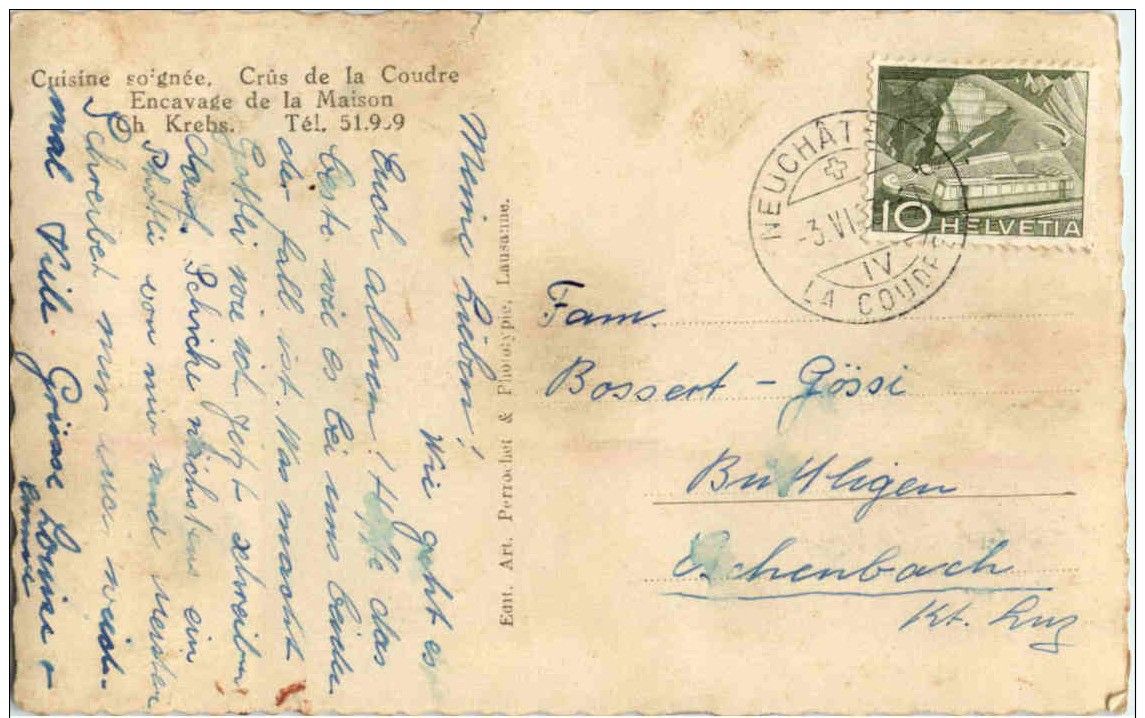 Cuisine soignée. Crûs de la Coudre
Encavage de la Maison
Ch Krebs. Tél. 51.9-9
Meine Lieben!
Wie geht es
Euch allen! Hoffe das
beste wie es bei uns beiden
der fall ist. Was macht
Gottli wie ich jetzt schreiben
darf. Schicke nächstens ein
von mir und
Schreibet mir
mal Viele Grüsse Louise +
Edit. Art. Perrochet & Phototypie, Lausanne.
NEUCHÂTEL
-3.VI
IV
LA COUDRE
10 HELVETIA
Fam.
Bossert - Gössi
Buttligen
Eschenbach
Kt. Luz